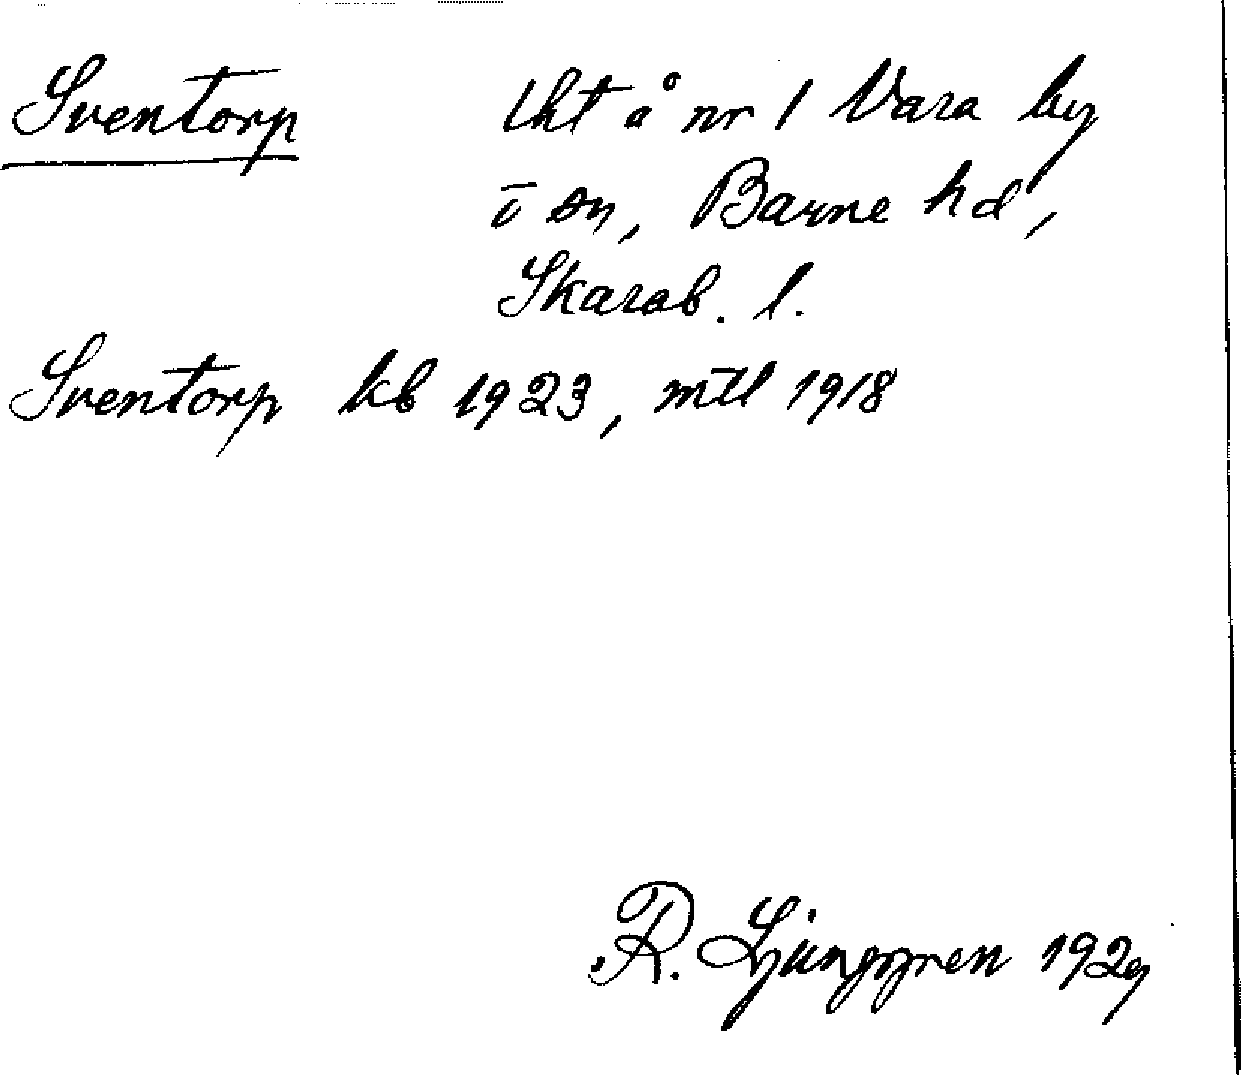 Sventorp lht å nr 1 Vara by
i sn, Barne hd,
Skarab. l.
Sventorp kb 1923, mtl 1918
R. Ljunggren 1929